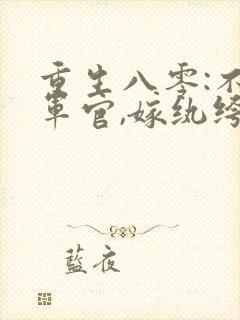 重生八零:不
軍官,嫁纨绔
藍夜